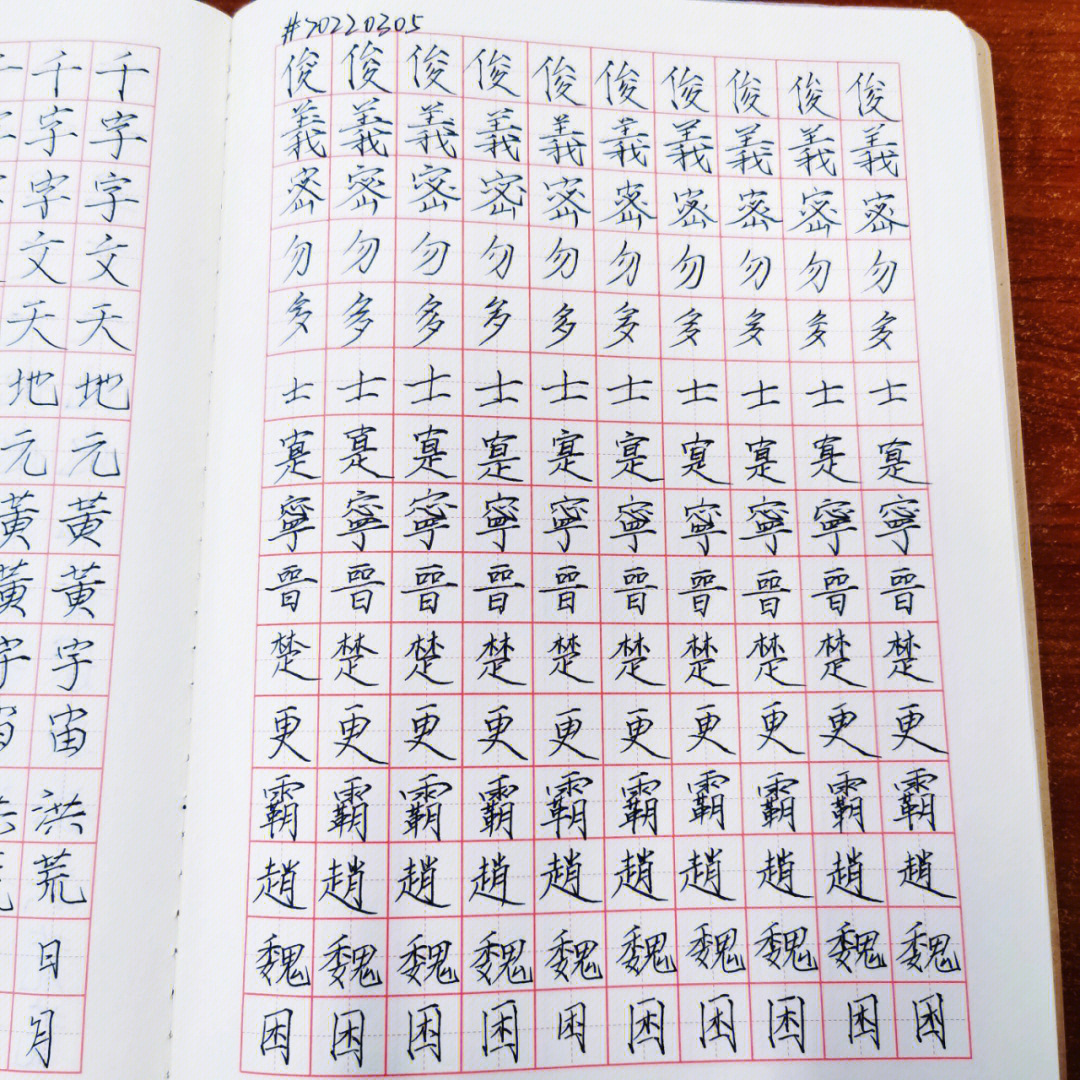 千千
字字
字字
文文
天天
地地
元元
黃黃
黃黃
字字
宙
洪
荒
日
月
#20220305
俊俊俊俊俊俊俊俊俊俊
義義義義義義義義義義
密密密密密密密密密密
勿勿勿勿勿勿勿勿勿勿
多多多多多多多多多多
士士士士士士士士士士
寔寔寔寔寔寔寔寔寔寔
寧寧寧寧寧寧寧寧寧寧
晉晉晉晉晉晉晉晉晉晉
楚楚楚楚楚楚楚楚楚楚
更更更更更更更更更更
霸霸霸霸霸霸霸霸霸霸
趙趙趙趙趙趙趙趙趙趙
魏魏魏魏魏魏魏魏魏魏
困困困困困困困困困困